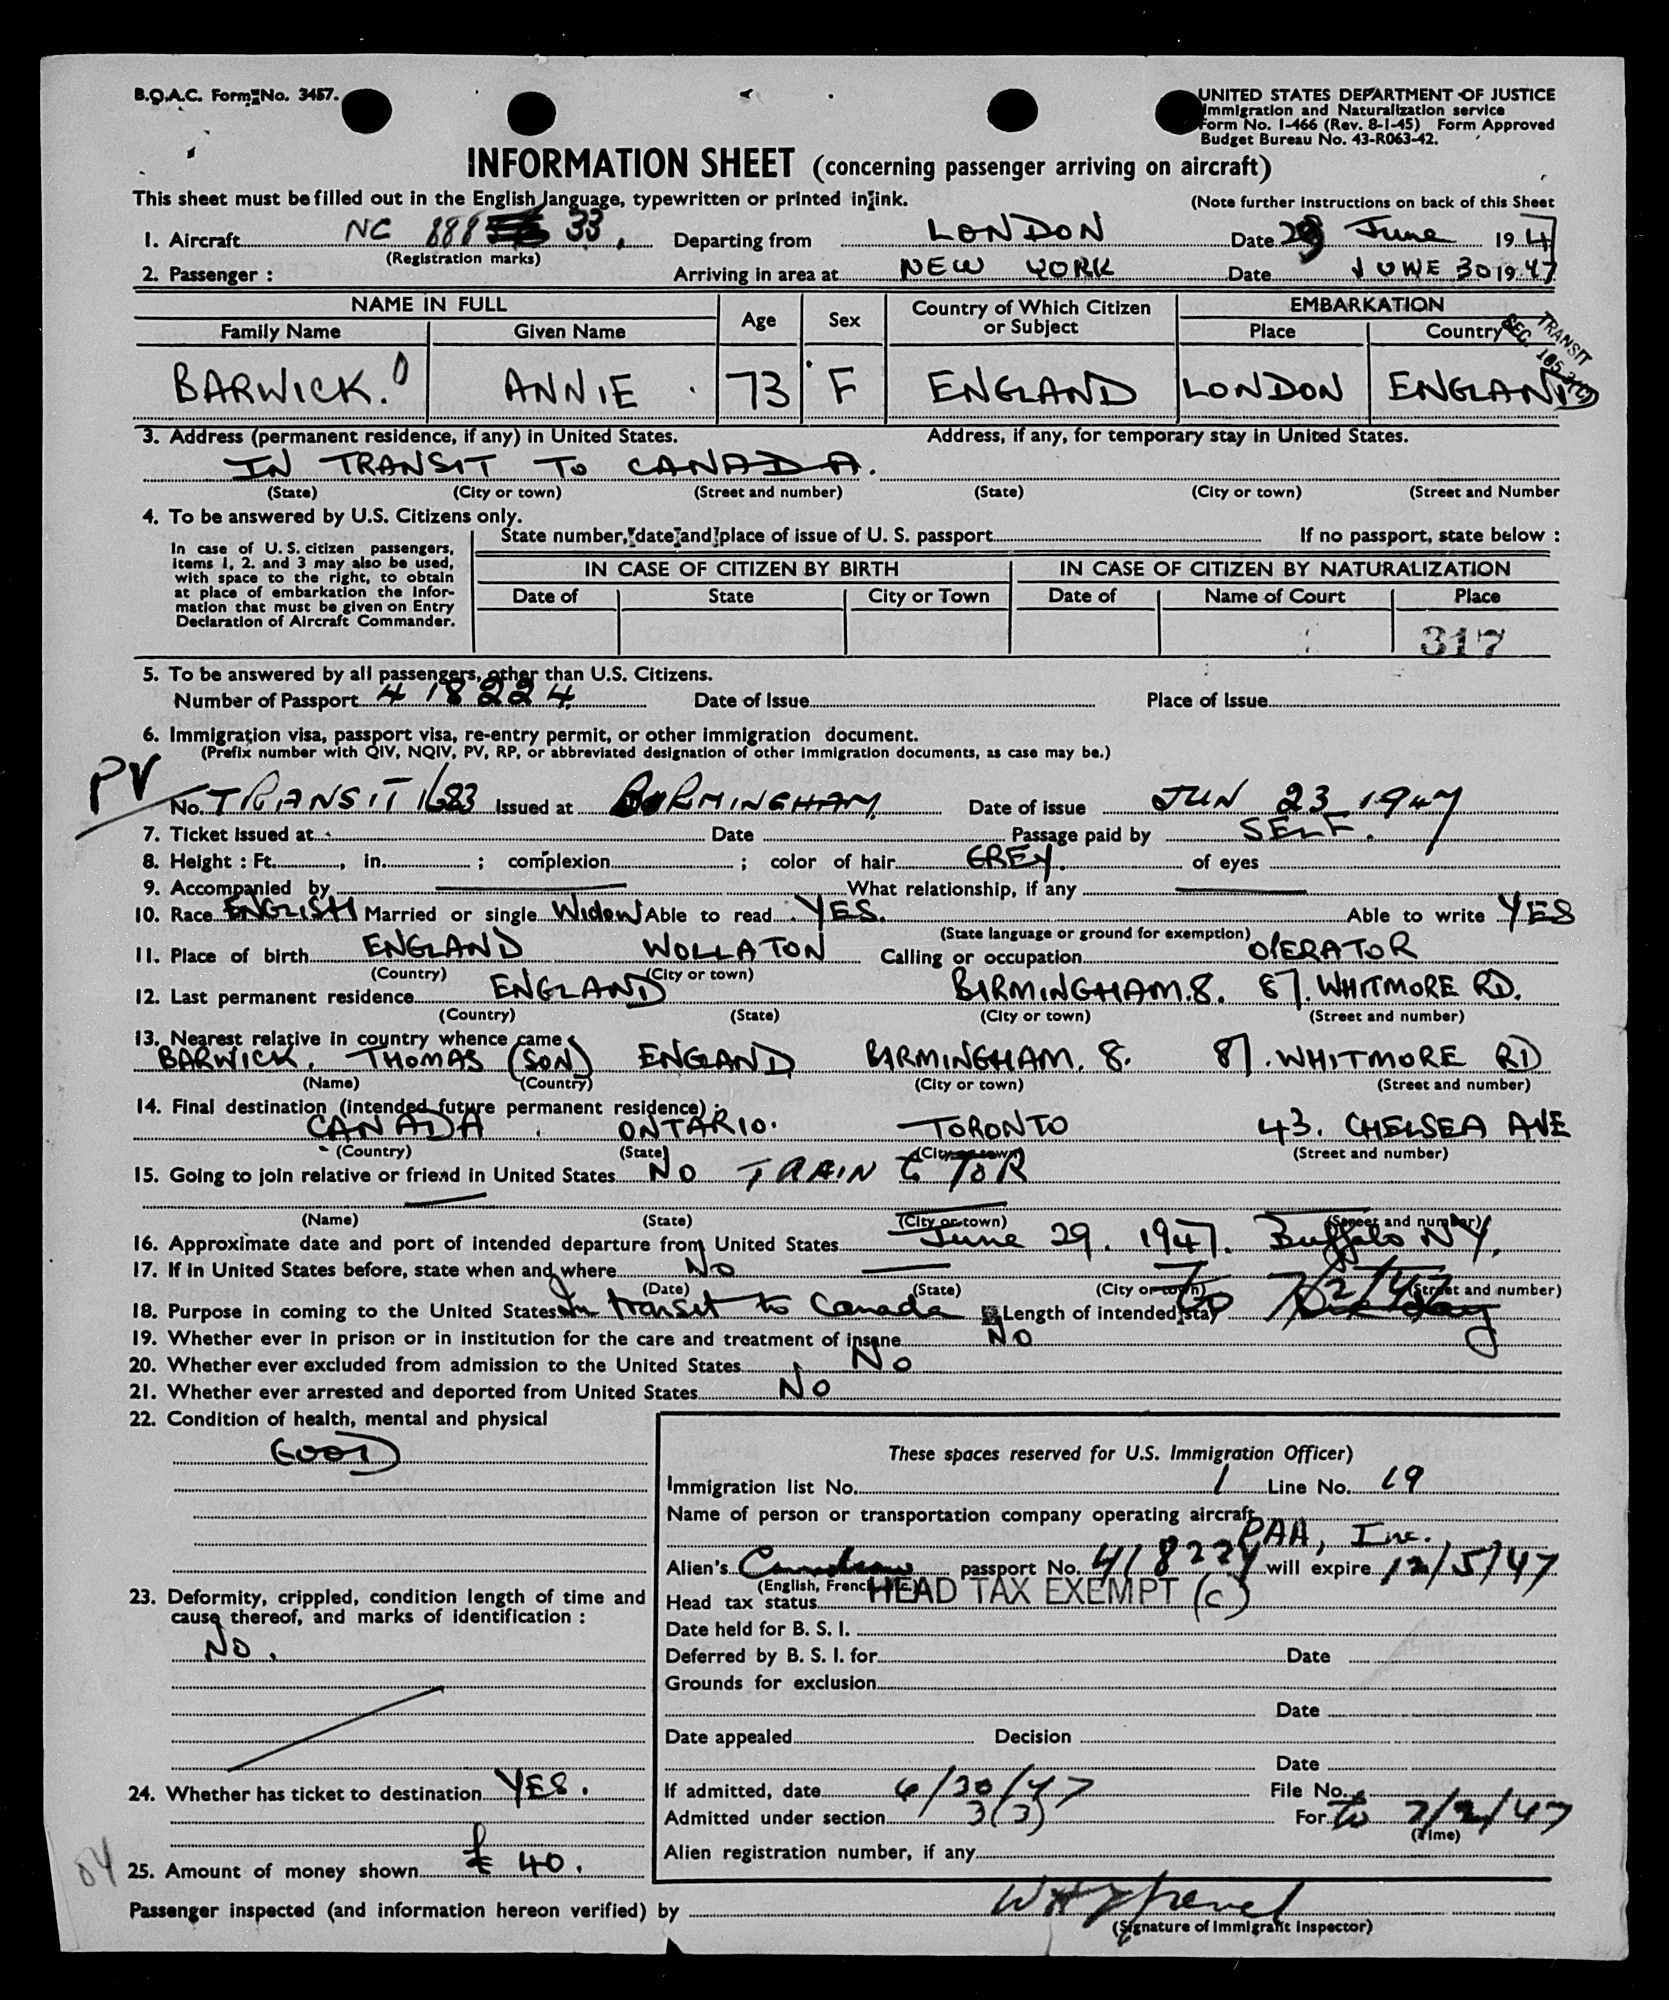 B.O.A.C. Form No. 3457.
UNITED STATES DEPARTMENT OF JUSTICE
Immigration and Naturalization service
Form No. I-466 (Rev. 8-1-45) Form Approved
Budget Bureau No. 43-R063-42.
INFORMATION SHEET (concerning passenger arriving on aircraft)
This sheet must be filled out in the English language, typewritten or printed in ink.
(Note further instructions on back of this Sheet
1. Aircraft NC 888 33. Departing from LONDON Date 29 June 1947
(Registration marks)
2. Passenger : Arriving in area at NEW YORK Date JUNE 30 1947
NAME IN FULL Age Sex Country of Which Citizen or Subject EMBARKATION
Family Name Given Name Place Country
TRANSIT
SEC.
BARWICK. ANNIE 73 F ENGLAND LONDON ENGLAND
3. Address (permanent residence, if any) in United States. Address, if any, for temporary stay in United States.
IN TRANSIT TO CANADA.
(State) (City or town) (Street and number) (State) (City or town) (Street and Number
4. To be answered by U.S. Citizens only.
State number, date and place of issue of U. S. passport If no passport, state below :
In case of U. S. citizen passengers,
items 1, 2. and 3 may also be used,
with space to the right, to obtain
at place of embarkation the infor-
mation that must be given on Entry
Declaration of Aircraft Commander.
IN CASE OF CITIZEN BY BIRTH IN CASE OF CITIZEN BY NATURALIZATION
Date of State City or Town Date of Name of Court Place
317
5. To be answered by all passengers, other than U.S. Citizens.
Number of Passport 418224 Date of Issue Place of Issue
6. Immigration visa, passport visa, re-entry permit, or other immigration document.
(Prefix number with QIV, NQIV, PV, RP, or abbreviated designation of other immigration documents, as case may be.)
PV
No. TRANSIT 1683 Issued at BIRMINGHAM. Date of issue JUN 23 1947
7. Ticket issued at Date Passage paid by SELF.
8. Height : Ft. , in. ; complexion ; color of hair GREY. of eyes
9. Accompanied by What relationship, if any
10. Race ENGLISH Married or single WIDOW Able to read YES. Able to write YES
(State language or ground for exemption)
11. Place of birth ENGLAND WOLLATON Calling or occupation OPERATOR
(Country) (City or town)
12. Last permanent residence ENGLAND BIRMINGHAM. 8. 87. WHITMORE RD.
(Country) (State) (City or town) (Street and number)
13. Nearest relative in country whence came
BARWICK. THOMAS (SON) ENGLAND BIRMINGHAM. 8. 87. WHITMORE RD
(Name) (Country) (City or town) (Street and number)
14. Final destination (intended future permanent residence) :
CANADA ONTARIO. TORONTO 43. CHELSEA AVE
(Country) (State) (City or town) (Street and number)
15. Going to join relative or friend in United States NO TRAIN to TOR
(Name) (State) (City or town) (Street and number)
16. Approximate date and port of intended departure from United States June 29. 1947. Buffalo NY.
17. If in United States before, state when and where No
(Date) (State) (City or town) (Street and number)
18. Purpose in coming to the United States In transit to Canada Length of intended stay One day To 7/2/47
19. Whether ever in prison or in institution for the care and treatment of insane No
20. Whether ever excluded from admission to the United States No
21. Whether ever arrested and deported from United States No
22. Condition of health, mental and physical
GOOD
These spaces reserved for U.S. Immigration Officer)
Immigration list No. 1 Line No. 19
Name of person or transportation company operating aircraft
PAA, Inc.
Alien's Canadian passport No. 418224 will expire 12/5/47
(English, French, etc.)
23. Deformity, crippled, condition length of time and
cause thereof, and marks of identification :
NO.
Head tax status HEAD TAX EXEMPT (c)
Date held for B. S. I.
Deferred by B. S. I. for Date
Grounds for exclusion
Date
Date appealed Decision
Date
24. Whether has ticket to destination YES.
If admitted, date 6/30/47 File No.
Admitted under section 3(3) For to 7/2/47
(Time)
Alien registration number, if any
04
25. Amount of money shown £ 40.
Passenger inspected (and information hereon verified) by
(Signature of Immigrant Inspector)